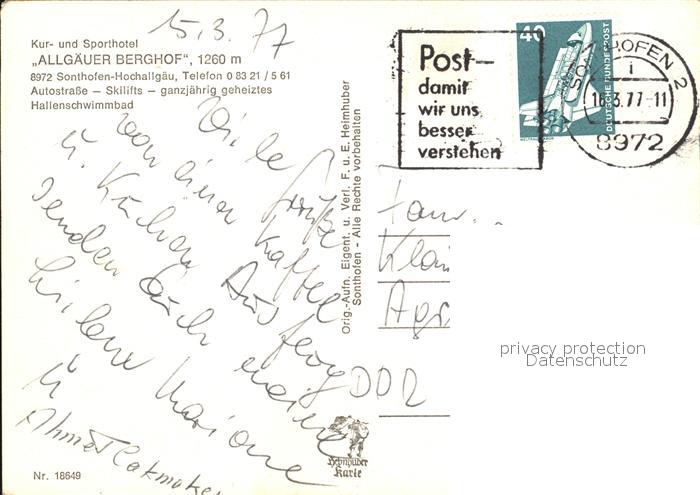 15.3.77
Kur- und Sporthotel
„ALLGÄUER BERGHOF", 1260 m
8972 Sonthofen-Hochallgäu, Telefon 0 83 21 / 5 61
Autostraße — Skilifts — ganzjährig geheiztes
Hallenschwimmbad
Viele Grüße
von einem Kaffee
u. Kuchen Ausflug
senden Euch
Marione
u
Ahmet Cakmaker
Nr. 18649
Orig.-Aufn. Eigent. u. Verl. F. u. E. Heimhuber
Sonthofen - Alle Rechte vorbehalten
Heimhuber
Karte
Post—
damit
wir uns
besser
verstehen
40
DEUTSCHE BUNDESPOST
SONTHOFEN 2
i
16.3.77-11
8972
Fam.
Klai
Agr
DDR
privacy protection
Datenschutz